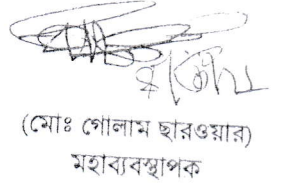 (মোঃ গোলাম ছারওয়ার)
মহাব্যবস্থাপক